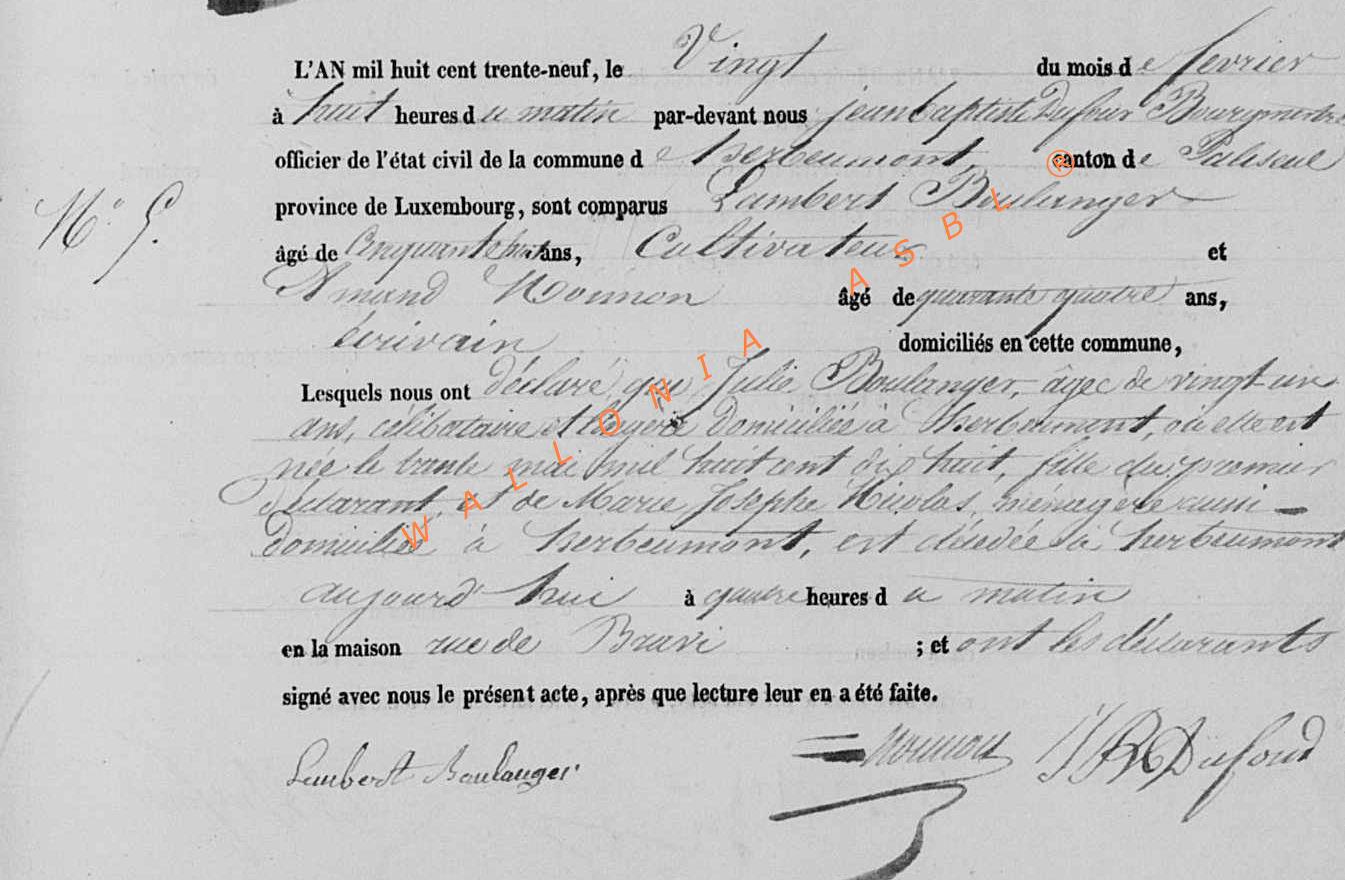 L'AN mil huit cent trente-neuf, le Vingt du mois de fevrier
à huit heures du matin par-devant nous jean baptiste Dufour Bourgmestre
officier de l'état civil de la commune de herbeumont, canton de Paliseul
N° 5. province de Luxembourg, sont comparus Lambert Boulanger
âgé de Cinquante huit ans, Cultivateur et
Amand Mounon âgé de quarante quatre ans,
écrivain domiciliés en cette commune,
Lesquels nous ont déclaré que Julie Boulanger, âgée de vingt un
ans, célibataire et domiciliée à herbeumont, où elle est
née le trente mai mil huit cent dix huit, fille du premier
déclarant, et de Marie Josephe Nicolas, ménagère aussi
domiciliée à herbeumont, est décédée à herbeumont
aujourd'hui à quatre heures du matin
en la maison rue de ; et ont les déclarants
signé avec nous le présent acte, après que lecture leur en a été faite.
Lambert Boulanger Mounon JB Dufour
WALLONIA ASBL ®